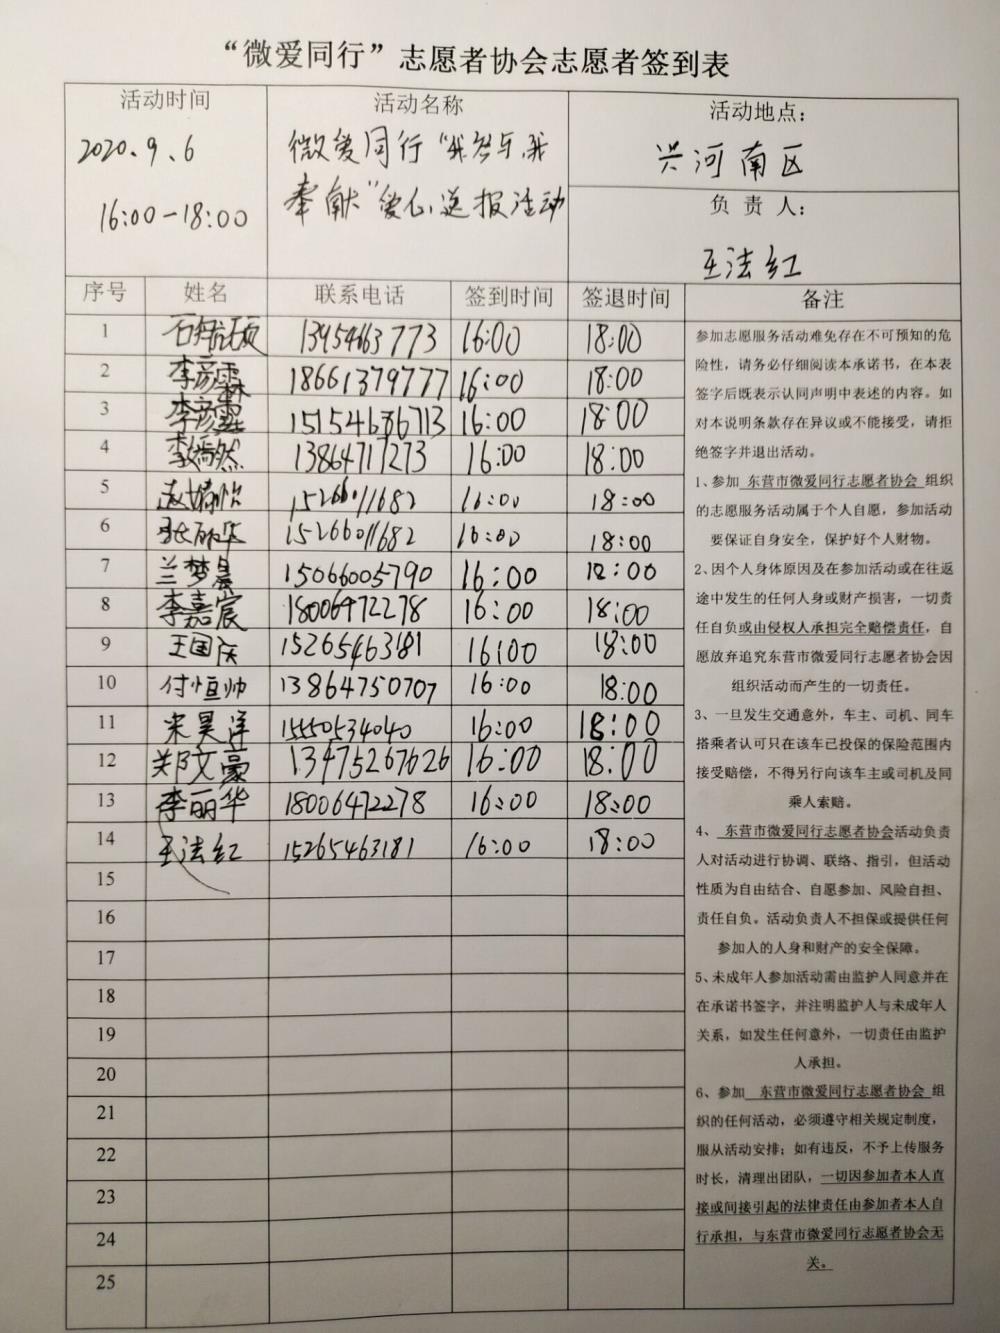 “微爱同行”志愿者协会志愿者签到表
活动时间
2020.9.6
16:00-18:00
活动名称
微爱同行“我参与,我
奉献”爱心送报活动
活动地点:
兴河南区
负 责 人:
王法红
序号 姓名 联系电话 签到时间 签退时间 备注
1 13954663773 16:00 18:00
2 李彦霖 18661379777 16:00 18:00
3 李彦 15154686713 16:00 18:00
4 然 13864711273 16:00 18:00
5 赵婧怡 15266011682 16:00 18:00
6 张丽华 15266011682 16:00 18:00
7 兰梦晨 15066005790 16:00 18:00
8 李嘉宸 18006472278 16:00 18:00
9 王国庆 15265463181 16:00 18:00
10 付恒帅 13864750707 16:00 18:00
11 宋昊洋 15550534040 16:00 18:00
12 郑文豪 13475267626 16:00 18:00
13 李丽华 18006472278 16:00 18:00
14 王法红 15265463181 16:00 18:00
15
16
17
18
19
20
21
22
23
24
25
参加志愿服务活动难免存在不可预知的危
险性，请务必仔细阅读本承诺书，在本表
签字后既表示认同声明中表述的内容。如
对本说明条款存在异议或不能接受，请拒
绝签字并退出活动。
1、参加 东营市微爱同行志愿者协会 组织
的志愿服务活动属于个人自愿，参加活动
要保证自身安全，保护好个人财物。
2、因个人身体原因及在参加活动或在往返
途中发生的任何人身或财产损害，一切责
任自负或由侵权人承担完全赔偿责任，自
愿放弃追究东营市微爱同行志愿者协会因
组织活动而产生的一切责任。
3、一旦发生交通意外，车主、司机、同车
搭乘者认可只在该车已投保的保险范围内
接受赔偿，不得另行向该车主或司机及同
乘人索赔。
4、 东营市微爱同行志愿者协会活动负责
人对活动进行协调、联络、指引，但活动
性质为自由结合、自愿参加、风险自担、
责任自负。活动负责人不担保或提供任何
参加人的人身和财产的安全保障。
5、未成年人参加活动需由监护人同意并在
在承诺书签字，并注明监护人与未成年人
关系，如发生任何意外，一切责任由监护
人承担。
6、参加 东营市微爱同行志愿者协会 组
织的任何活动，必须遵守相关规定制度，
服从活动安排；如有违反，不予上传服务
时长，清理出团队，一切因参加者本人直
接或间接引起的法律责任由参加者本人自
行承担，与东营市微爱同行志愿者协会无
关。